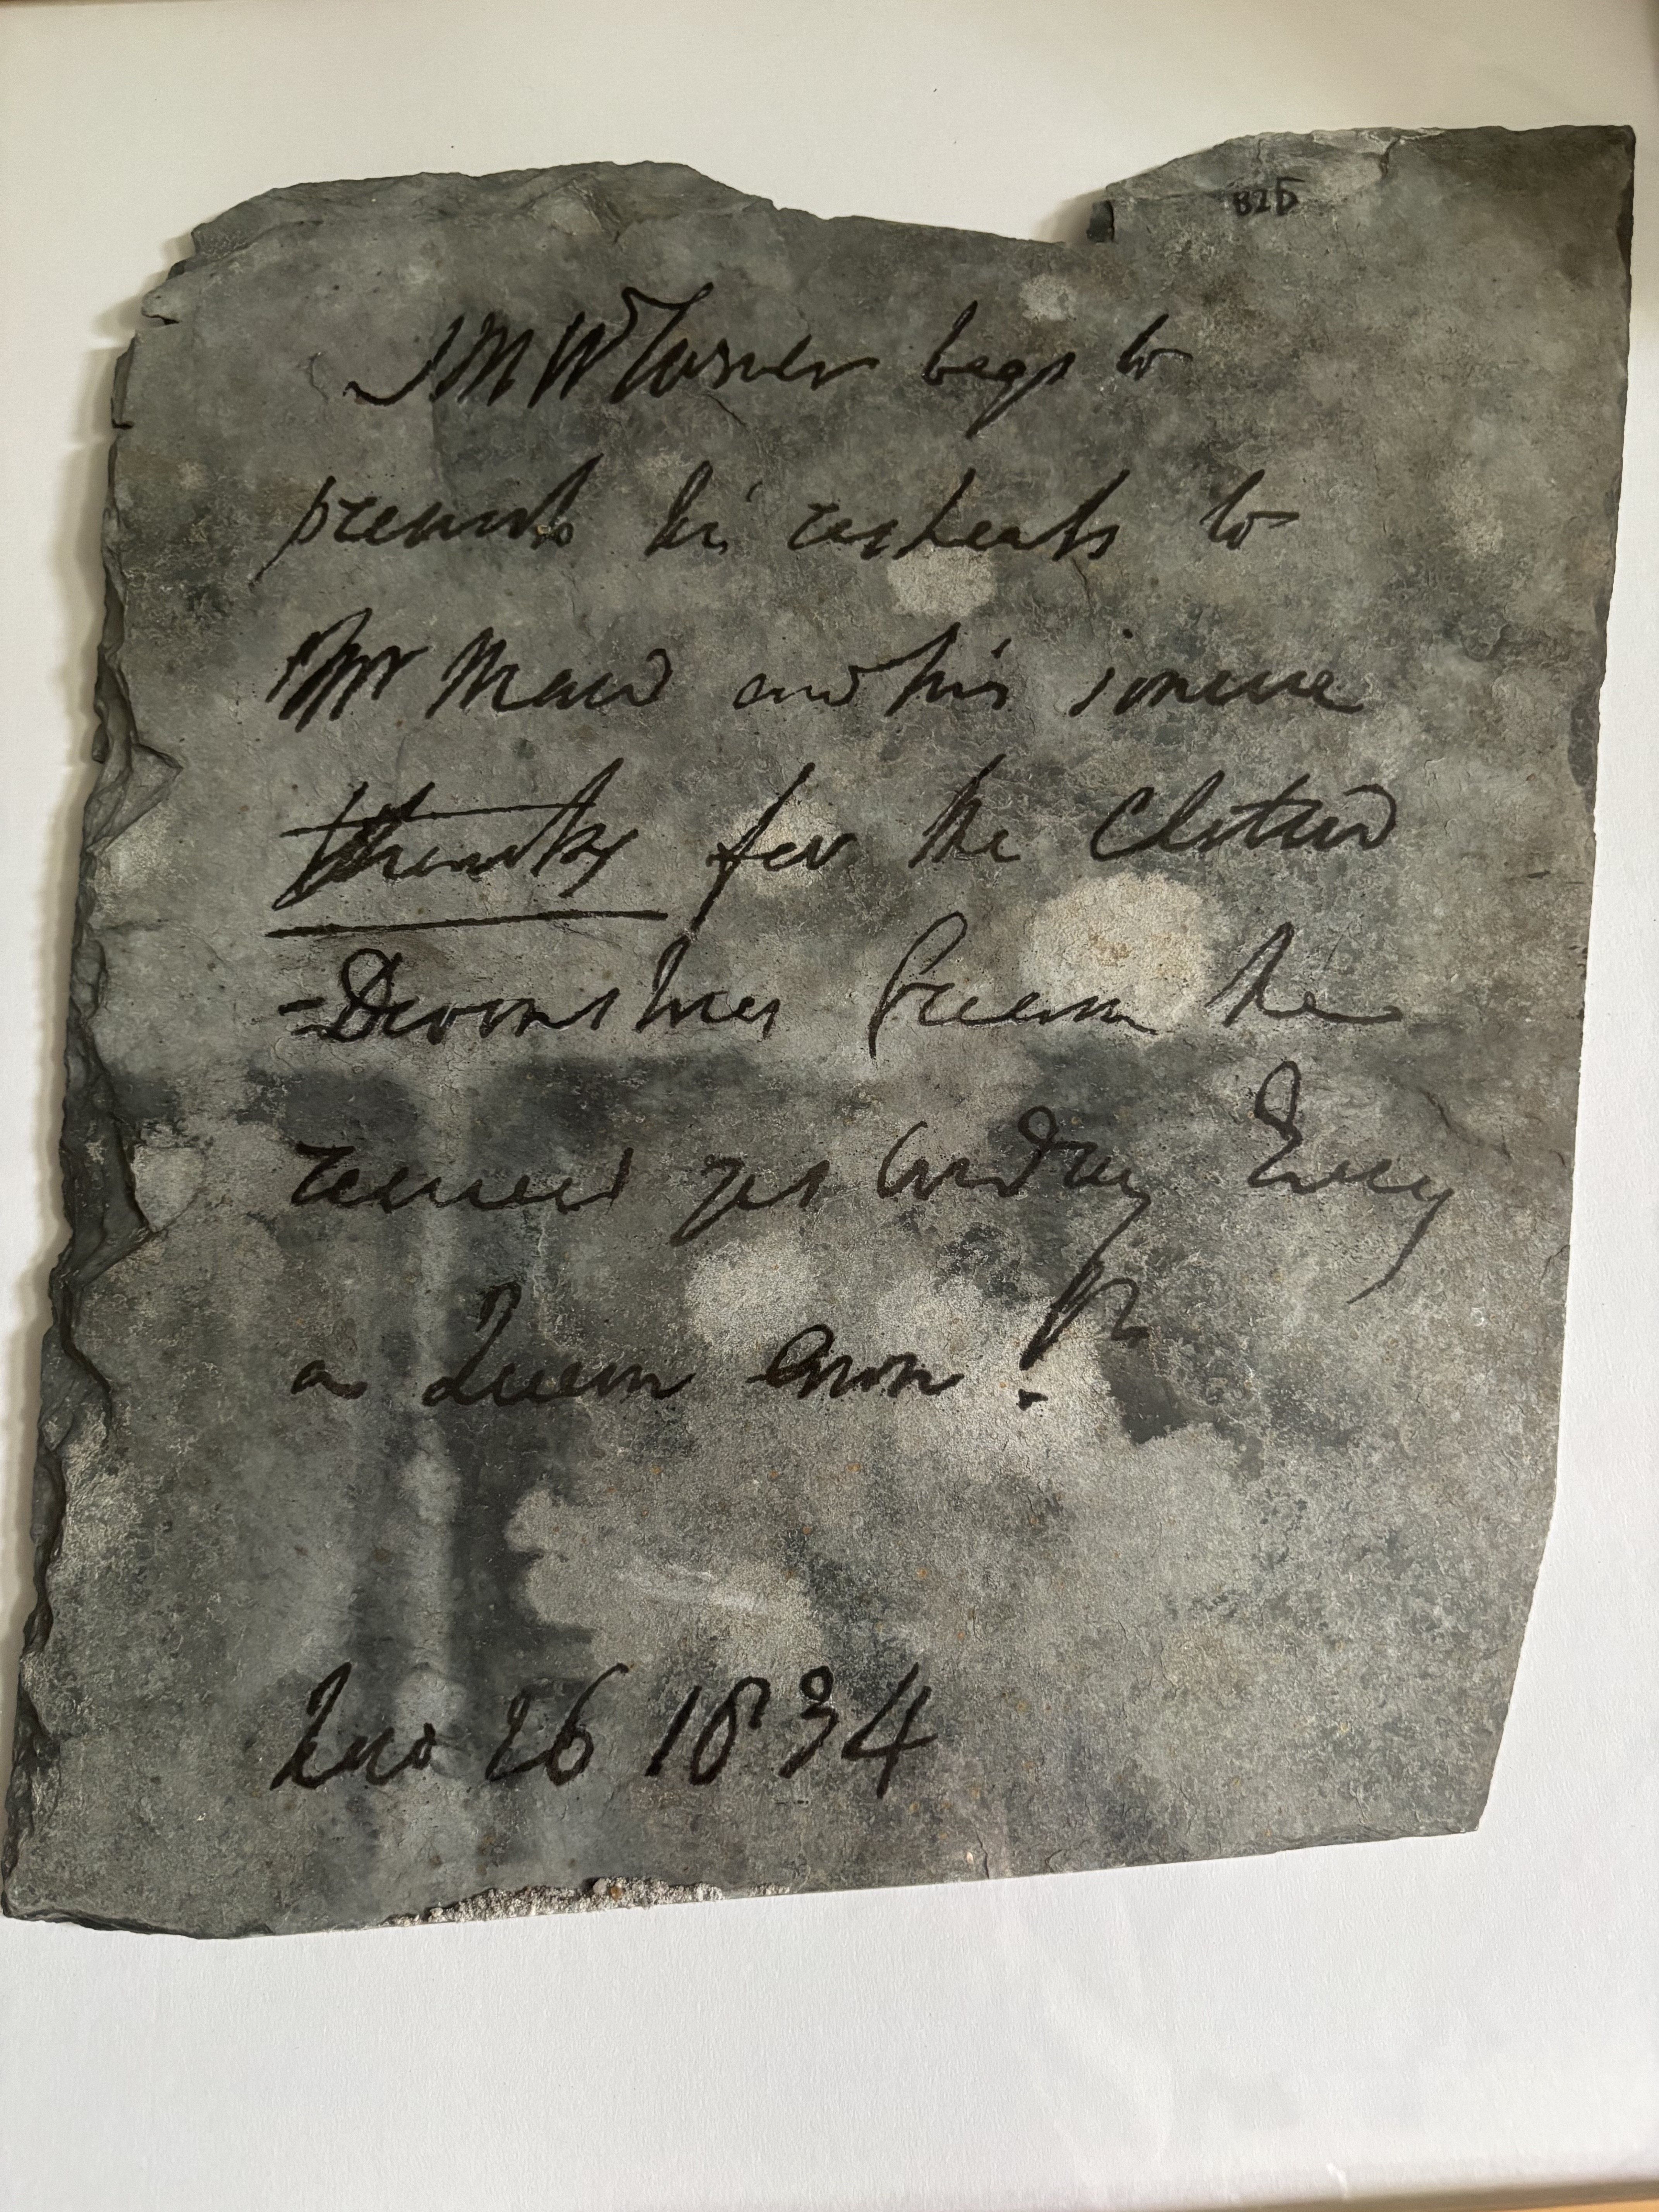 B25
JMW Turner begs to
presents his respects to
Mr Maw and his sincere
thanks for the Clotted
-Devonshire Cream he
received yesterday Every
a
Dec 26 1834